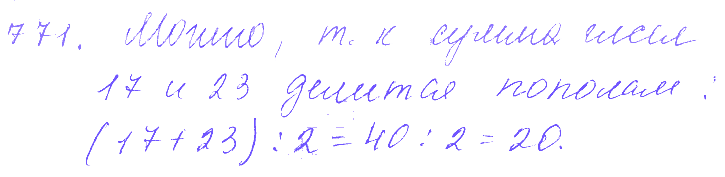 771. Можно, т. к сумма чисел
17 и 23 делится пополам:
(17+23):2=40:2=20.